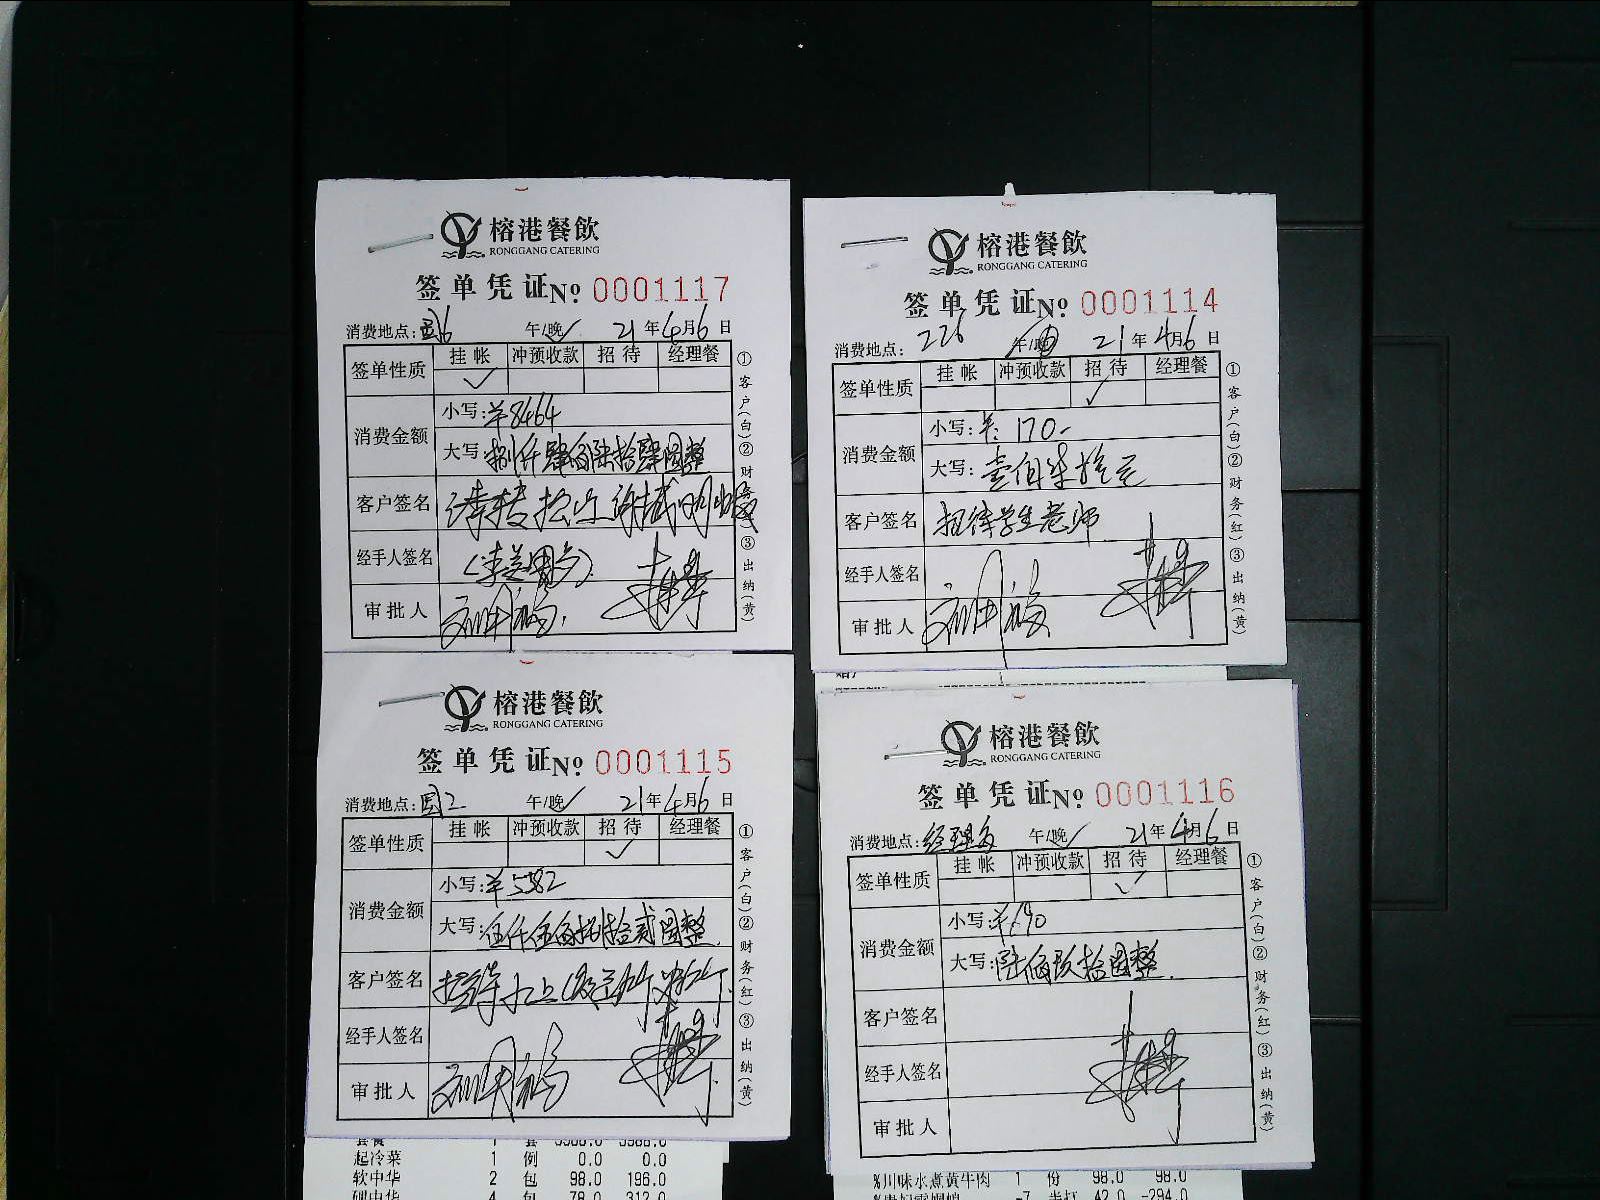 榕港餐飲
RONGGANG CATERING
签单凭证№ 0001117
消费地点: 午/晚 21年4月6日
签单性质 挂帐 冲预收款 招待 经理餐
✓
消费金额 小写:¥8464
大写:捌仟肆佰陆拾肆圆整
客户签名
经手人签名
审批人
①客户(白)②财务(红)③出纳(黄)
榕港餐飲
RONGGANG CATERING
签单凭证№ 0001114
消费地点: 226 午/晚 21年4月6日
签单性质 挂帐 冲预收款 招待 经理餐
✓
消费金额 小写:¥:170-
大写:壹佰柒拾元
客户签名 招待学生老师
经手人签名
审批人
①客户(白)②财务(红)③出纳(黄)
榕港餐飲
RONGGANG CATERING
签单凭证№ 0001115
消费地点: 午/晚 21年4月6日
签单性质 挂帐 冲预收款 招待 经理餐
✓
消费金额 小写:¥5582
大写:伍仟伍佰捌拾贰圆整
客户签名
经手人签名
审批人
①客户(白)②财务(红)③出纳(黄)
套餐 1 套
起冷菜 1 例 0.0 0.0
软中华 2 包 98.0 196.0
硬中华 4 包 78.0 312.0
榕港餐飲
RONGGANG CATERING
签单凭证№ 0001116
消费地点:经理 午/晚 21年4月6日
签单性质 挂帐 冲预收款 招待 经理餐
✓
消费金额 小写:¥690
大写:陆佰玖拾圆整
客户签名
经手人签名
审批人
①客户(白)②财务(红)③出纳(黄)
%川味水煮黄牛肉 1 份 98.0 98.0
-7 42.0 -294.0